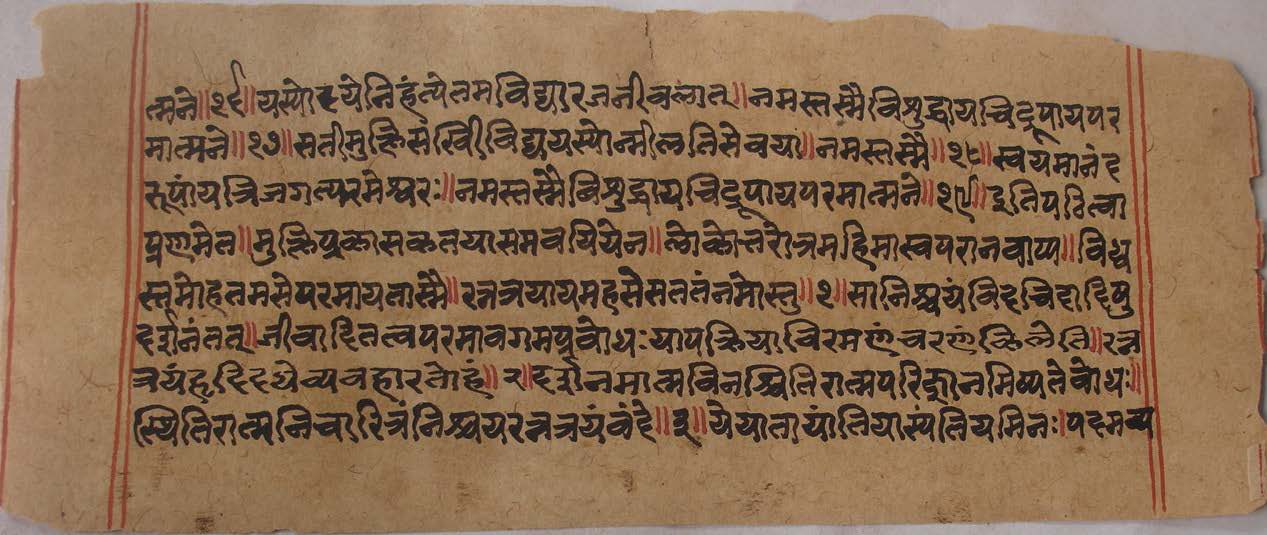 त्मने॥२६॥यस्योदयेनिहंत्येतमविद्यारजनीबलात्॥नमस्तस्मैविशुद्धायचिद्रूपायपर
मात्मने॥२७॥सतीमुक्तिसखीविद्यायस्योन्मीलतिसेवया॥नमस्तस्मै॥२८॥स्वयमानंद
रूपायत्रिजगत्परमेश्वरः॥नमस्तस्मैविशुद्धायचिद्रूपायपरमात्मने॥२९॥इतिपठित्वा
प्रणमेत॥मुक्तिप्रकासकतयासमवयियेन॥लोकोत्तरोत्रमहिमास्वपरानवाप्य॥विध्व
स्तमोहतमसेपरमायतास्मै॥रत्नत्रयायमहसेसततंनमोस्तु॥१॥सानिश्चयंविदचिदादिषु
दर्शनंतत्॥जीवादितत्वपरमावगमप्रबोधः॥यापक्रियाविरमणंचरणंकिलेति॥रत्न
त्रयंहृदिदधेव्यवहारतोहं॥२॥दर्शनमात्मविनश्चितिरात्मपरिज्ञानमिष्यतेबोधः॥
स्थितिरात्मनिचारित्रंनिश्चयरत्नत्रयंवंदे॥३॥येयातायांतियास्यंतियमिनः।पदमव्य